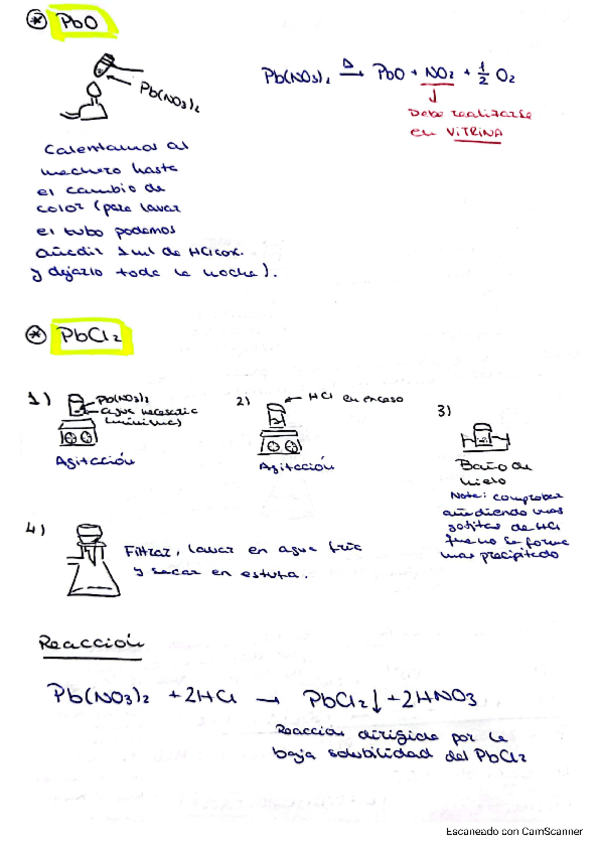 * PbO
Pb(NO3)2 Δ→ PbO + NO2 + 1/2 O2
Pb(NO3)2
↓
Debe realizarse
en VITRINA
Calentamos al
mechero hasta
el cambio de
color (para lavar
el tubo podemos
añadir 1 ml de HCl con.
y dejarlo toda la noche).
* PbCl2
1)
Pb(NO3)2
agua necesaria
(mínima)
Agitación
2)
← HCl en exceso
Agitación
3)
Baño de
hielo
Nota: comprobar
añadiendo mas
gotitas de HCl
que no se forme
mas precipitado
4)
Filtrar, lavar en agua fría
y secar en estufa.
Reacción
Pb(NO3)2 + 2HCl → PbCl2↓ + 2HNO3
Reacción dirigida por la
baja solubilidad del PbCl2
Escaneado con CamScanner